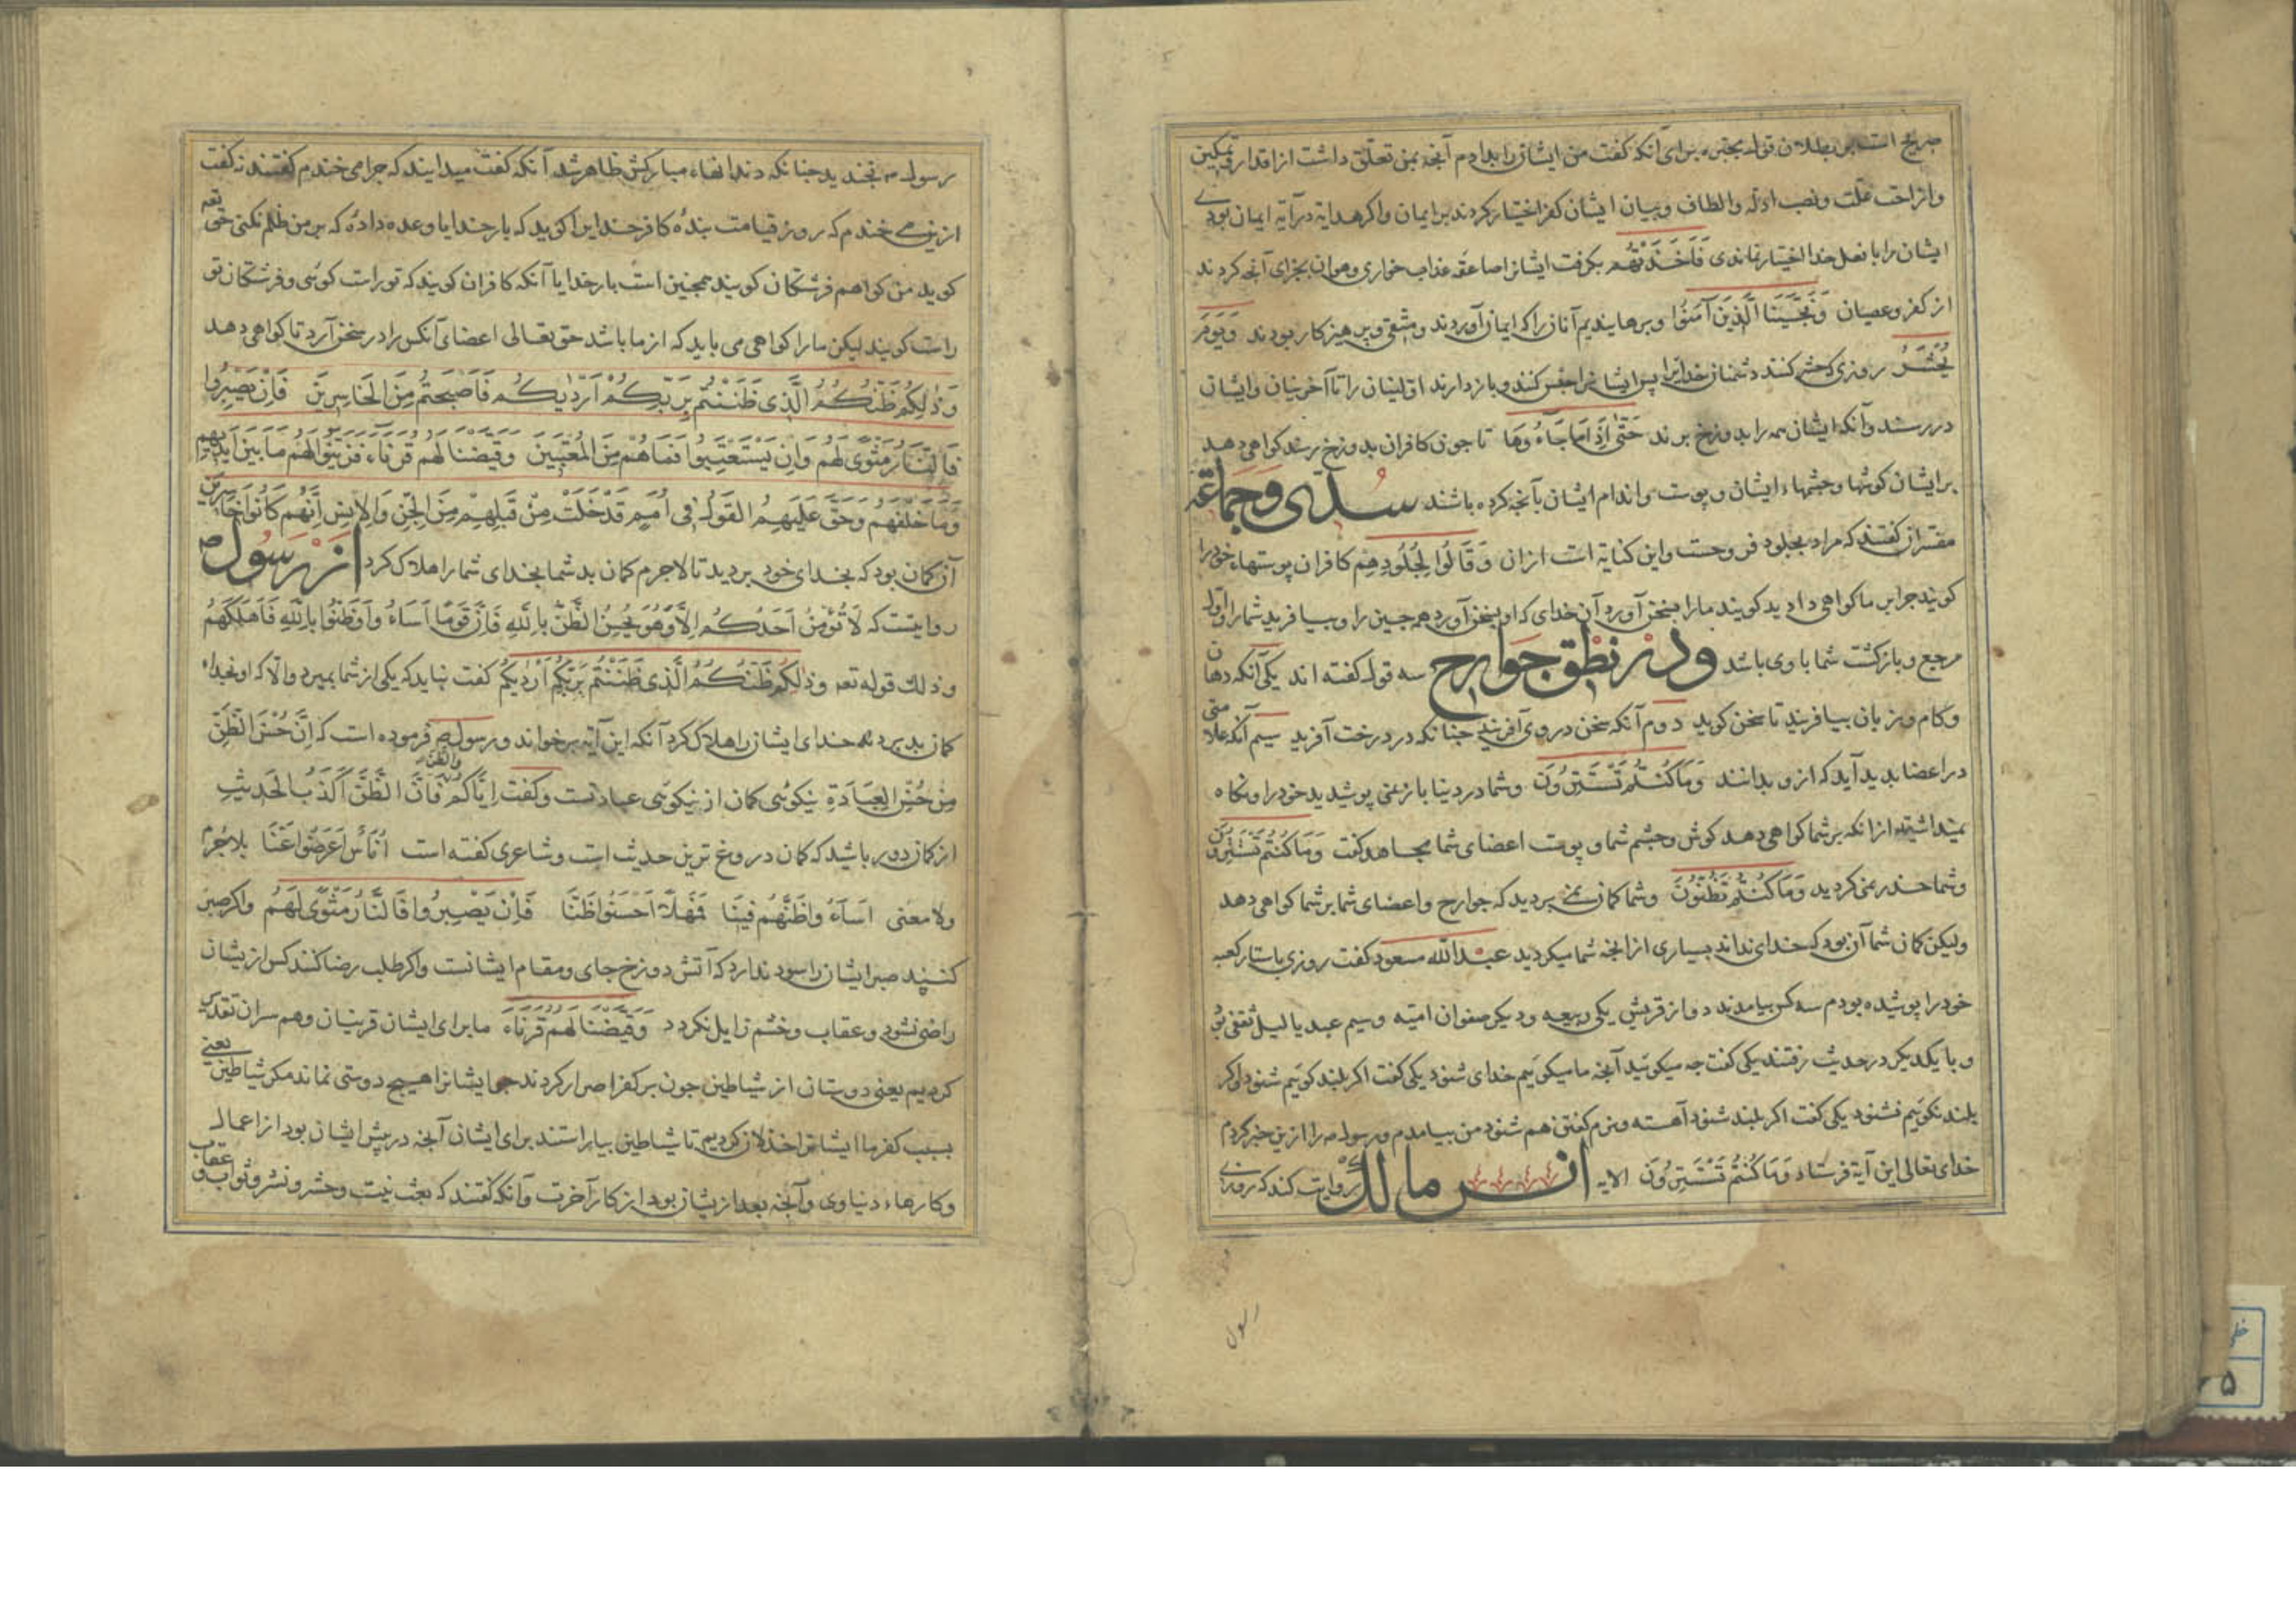 صریح است بر بطلان قول مجبره برای آنکه گفت من ایشان را بدادم آنچه بمن تعلق داشت از اقدار و تمکین
و ازاحت علت و نصب ادله و الطاف و بیان ایشان کفر اختیار کردند بر ایمان و اکر هدایة در آیة ایمان بودی
ایشان را با فعل خدا اختیار نماندی فَاَخَذَتْهُم بکرفت ایشانرا صاعقه عذاب خواری و هوان بجزای آنچه کردند
از کفر و عصیان وَنَجَّيْنَا الَّذِينَ آمَنُوا و برهانیدیم آنان را که ایمان آوردند و متقی و پرهیزکار بودند وَيَوْمَ
يُحْشَرُ روزی که حشر کنند دشمنان خدایرا پس ایشانرا حبس کنند و باز دارند اوّلینان را تا آخرینان و ایشان
در رسند و آنکه ایشان همه را بدوزخ برند حَتّٰى اِذَا مَا جَاءُوهَا تا جون کافران بدوزخ رسند کواهی دهد
بر ایشان کوشها و چشمهاء ایشان و پوست و اندام ایشان بآنچه کرده باشند سُدّی وَجَمَاعَة
مفسران گفتند که مراد بجلود فروجست و این کنایة است از ان وَقَالُوا لِجُلُودِهِم کافران پوستهاء خود را
کویند جرا بر ما کواهی دادید کویند ما را بسخن آورد آن خدای که او بسخن آورد همه چیز را و بیافرید شما را اوّل
مرجع و بازکشت شما با وی باشد ودر نطق جوارح سه قول گفته اند یکی آنکه دهان
و کام و زبان بیافریند تا سخن کوید دوم آنکه سخن در وی آفریند جنانکه در درخت آفرید سیم آنکه علامتی
در اعضا بدید آید که ازو بدانند وَمَا كُنْتُمْ تَسْتَتِرُونَ و شما در دنیا باز نمی پوشیدید خود را و نکاه
نمیداشتید از انکه بر شما کواهی دهد کوش و چشم شما و پوست اعضای شما مجاهد کفت وَمَا كُنْتُمْ تَسْتَتِرُونَ
و شما حذر نمی کردید وَمَا كُنْتُمْ تَظُنُّونَ و شما کمان نمی بردید که جوارح و اعضای شما بر شما کواهی دهد
ولیکن کمان شما آن بود که خدای نداند بسیاری از انچه شما میکردید عبدالله مسعود کفت روزی باستار کعبه
خود را پوشیده بودم سه کس بیامدند دو از قریش یکی ربیعه و دیکر صفوان امیّه و سیم عبد یالیل ثقفی
و با یکدیکر در حدیث رفتند یکی کفت جه میکوئید آنچه ما میکوئیم خدای شنود یکی کفت اکر بلند کوئیم شنود و اکر
بلند نکوئیم نشنود یکی کفت اکر بلند شنود آهسته و نرم کفتن هم شنود من بیامدم و رسول را ازین خبر کردم
خدای تعالی این آیة فرستاد وَمَا كُنْتُمْ تَسْتَتِرُونَ الایه انس مالک روایت کند که روزی
رسول
رسول بخندید جنانکه دندانهاء مبارکش ظاهر شد آنکه کفت میدانید که جرا می خندم کفتند نه کفت
ازین می خندم که روز قیامت بندۀ کافر خدایرا کوید که بار خدایا وعده دادۀ که بر من ظلم نکنی حق تعه
کوید من کواهم فرشتکان کویند همچنین است بار خدایا آنکه کافران کویند که تو راست کوئی و فرشتکان تو
راست کویند لیکن ما را کواهی می باید که از ما باشد حق تعالی اعضای آنکس را در سخن آرد تا کواهی دهد
وَذٰلِكُمْ ظَنُّكُمُ الَّذِى ظَنَنْتُمْ بِرَبِّكُمْ اَرْدٰيكُمْ فَاَصْبَحْتُمْ مِنَ الْخَاسِرِينَ فَاِنْ يَصْبِرُوا
فَالنَّارُ مَثْوًى لَهُمْ وَاِنْ يَسْتَعْتِبُوا فَمَا هُمْ مِنَ الْمُعْتَبِينَ وَقَيَّضْنَا لَهُمْ قُرَنَاءَ فَزَيَّنُوا لَهُمْ مَا بَيْنَ اَيْدِيهِمْ
وَمَا خَلْفَهُمْ وَحَقَّ عَلَيْهِمُ الْقَوْلُ فِى اُمَمٍ قَدْ خَلَتْ مِنْ قَبْلِهِمْ مِنَ الْجِنِّ وَالْاِنْسِ اِنَّهُمْ كَانُوا خَاسِرِينَ
آن کمان بود که بخدای خود بردید تا لاجرم کمان بد شما بخدای شما را هلاک کرد از رسول ص
روایتست که لَا تُؤْمِنُ اَحَدُكُمْ اِلَّا وَهُوَ يُحْسِنُ الظَّنَّ بِاللّٰهِ فَاِنَّ قَوْمًا اَسَاءُ وَاوَظَنُّوا بِاللّٰهِ فَاَهْلَكَهُمْ
وذلك قوله تعه وَذٰلِكُمْ ظَنُّكُمُ الَّذِى ظَنَنْتُمْ بِرَبِّكُمْ اَرْدٰيكُمْ کفت نباید که یکی از شما بمیرد و الّا که او بخداء
کمان بد برد که خدای ایشان را هلاک کرد آنکه این آیة بر خواند و رسول ص فرموده است که اِنَّ حُسْنَ الظَّنِّ
مِنْ حُسْنِ الْعِبَادَةِ نیکوئی کمان از نیکوئی عبادتست و کفت اِيَّاكُمْ وَالظَّنَّ فَاِنَّ الظَّنَّ اَكْذَبُ الْحَدِيثِ
از کمان دور باشید که کمان دروغ ترین حدیث است و شاعری کفته است اُنَاسٌ اَعْرَضُوا عَنَّا بِلَا جُرْمٍ
ولا معنی اَسَاءُ وا ظَنَّهُمْ فِينَا فَهَلَّا اَحْسَنُوا ظَنَّا فَاِنْ يَصْبِرُوا فَالنَّارُ مَثْوًى لَهُمْ و اکر صبر
کنند صبر ایشان را سود ندارد که آتش دوزخ جای و مقام ایشانست و اکر طلب رضا کنند کس از یشان
راضی نشود و عقاب و خشم زایل نکردد وَقَيَّضْنَا لَهُمْ قُرَنَاءَ ما برای ایشان قرینان و هم سران تقدیر
کردیم یعنی دوستان از شیاطین جون بر کفر اصرار کردند ایشانرا هیچ دوستی نماند مکر شیاطین یعنی
بسبب کفر ما ایشانرا خذلان کردیم تا شیاطین بیاراستند برای ایشان آنچه در پیش ایشان بود از اعمال
و کارهاء دنیاوی و آنچه بعد از یشان بود از کار آخرت و آنکه کفتند که بعث نیست و حشر و نشر و ثواب و عقاب
۵